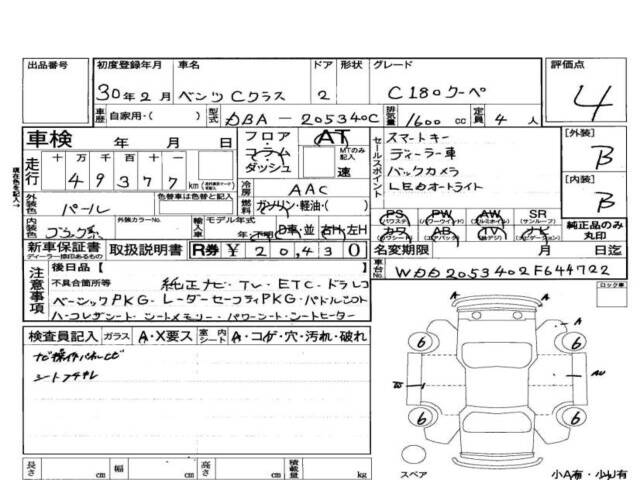 出品番号 初度登録年月 車名 ドア 形状 グレード 評価点
30年2月 ベンツCクラス 2 C180クーペ 4
車歴 自家用・( ) 型式 DBA-205340C 排気量 1600 cc 定員 4 人
車検 年 月 日
フロア コラム ダッシュ AT MTのみ記入 速
セールスポイント
スマートキー
ディーラー車
バックカメラ
LEDオートライト
[外装] B
[内装] B
走行 十 万 千 百 十 一
49377 km
現在色を記入→
冷房 AAC
燃料 ガソリン・軽油・( )
外装色 パール 色替車は色替と記入
内装色 外装カラーNo. 輸入車 モデル年式
年 不明 D車・並 右H・左H
PS (パワステ) PW (パワーウインド) AW (アルミホイール) SR (サンルーフ)
カワ (カワシート) AB (エアバック) TV (純正テレビ) ナビ (ナビゲーション)
純正品のみ丸印
新車保証書 ディーラー捺印あるもの 取扱説明書 R券 ¥20,430
名変期限 月 日迄
車台No. WDD2053402F644722
注意事項
後日品【 】
不具合箇所等 純正ナビ・TV・ETC・ドラレコ
ベーシックPKG・レーダーセーフティPKG・パドルシフト
ハーフレザーシート・シートメモリー・パワーシート・シートヒーター
ロック車
検査員記入 ガラス A・X要ス 室内シート A・コゲ・穴・汚れ・破れ
A A
6 6
W AU
6 6
スペア
小A有・小U有
長さ cm 幅 cm 高さ cm 積載量 kg